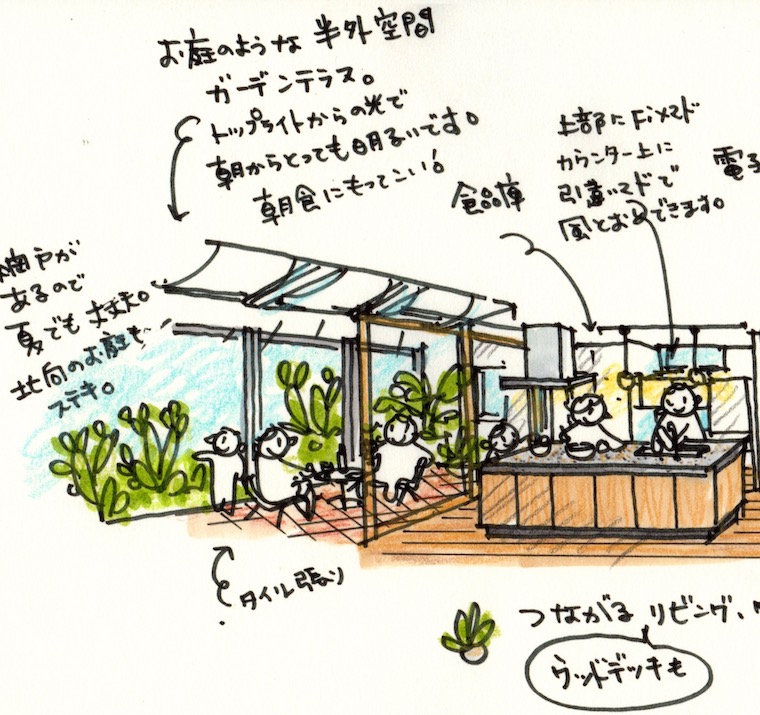 お庭のような 半外空間
ガーデンテラス。
トップライトからの光で
朝からとっても明るいです。
朝食にもってこい!
食品庫
上部にFixマド
カウンター上に
引違いマドで
風とおしできます。
電子
網戸が
あるので
夏でも 大丈夫。
北向のお庭も
ステキ。
タイル張り
つながる リビング、
ウッドデッキも